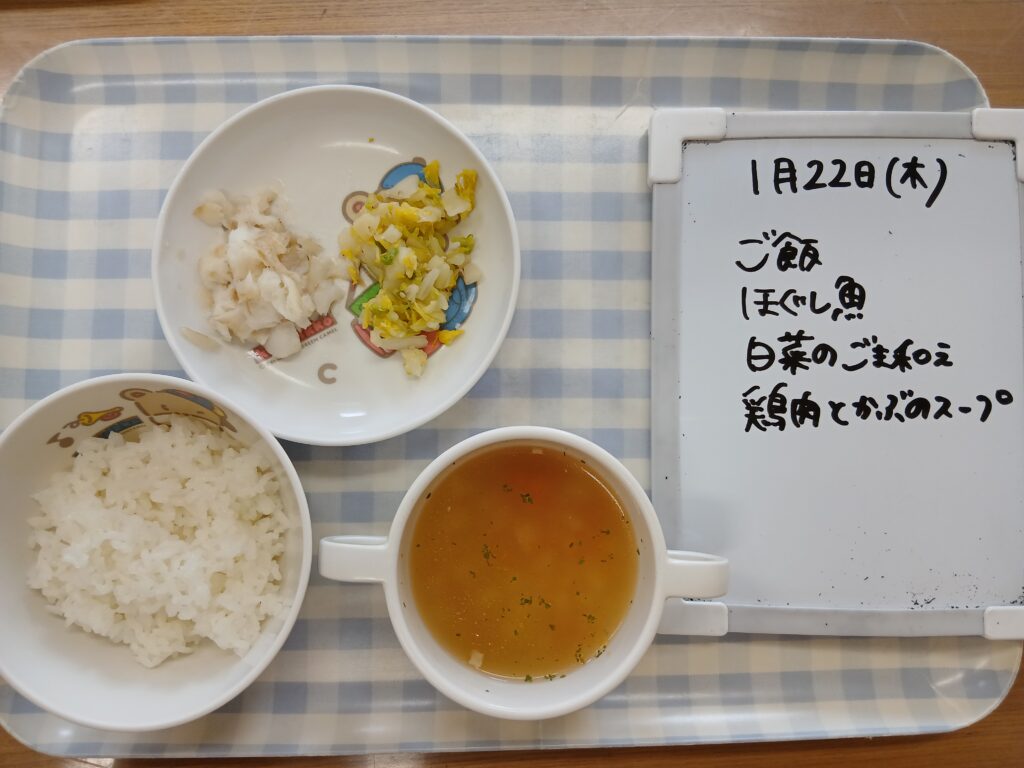 1月22日(木)
ご飯
ほぐし魚
白菜のごま和え
鶏肉とかぶのスープ
C